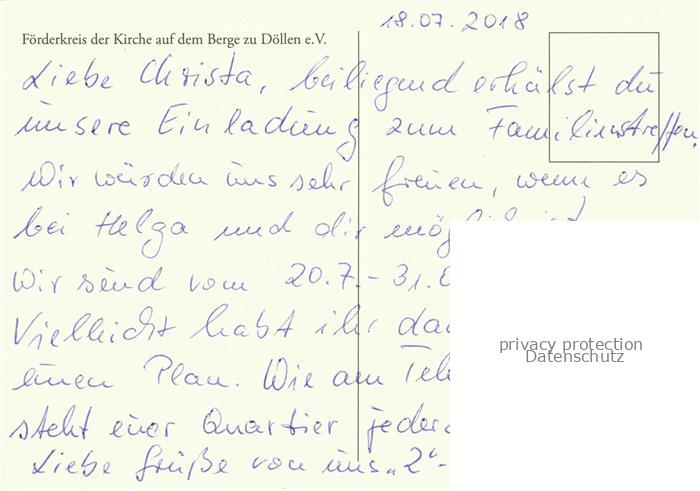 18.07.2018
Förderkreis der Kirche auf dem Berge zu Döllen e.V.
Liebe Christa, beiliegend erhälst du
unsere Einladung zum Familienstreffen.
Wir würden uns sehr freuen, wenn es
bei Helga und dir
Wir sind vom 20.7.-31.
Vielleicht habt ihr
einen Plan. Wie am
steht euer Quartier
Liebe Grüße von uns „2“-
privacy protection
Datenschutz